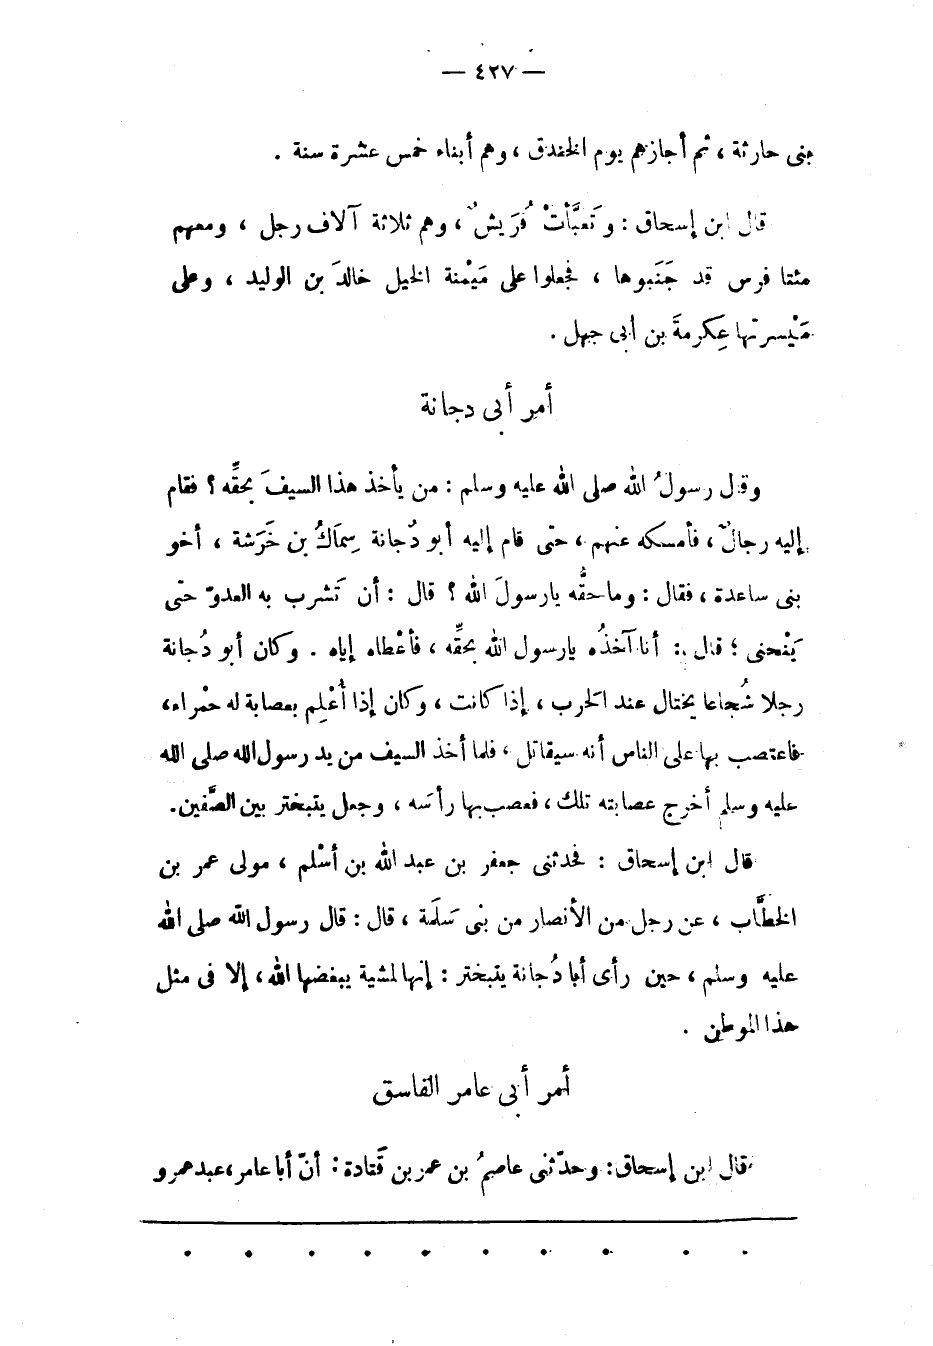 — ٤٢٧ —
بنى حارثة ، ثم أجازهم يوم الخندق ، وهم أبناء خمس عشرة سنة .
قال ابن إسحاق : وتَعبَّأتْ قُرَيشٌ ، وهم ثلاثة آلاف رجل ، ومعهم
مئتا فرس قد جَنَبوها ، فجعلوا على مَيْمنة الخيل خالدَ بن الوليد ، وعلى
مَيْسرتها عِكرمةَ بن أبى جهل .
أمر أبى دجانة
وقال رسولُ الله صلى الله عليه وسلم : من يأخذ هذا السيفَ بحقِّه ؟ فقام
إليه رجالٌ ، فأمسكه عنهم ، حتى قام إليه أبو دُجانة سِمَاكُ بن خَرَشة ، أخو
بنى ساعدة ، فقال : وما حقُّه يارسولَ الله ؟ قال : أن تَضرب به العدوّ حتى
يَنْحنى ؛ قال : أنا آخذُه يارسول الله بحقِّه ، فأعْطاه إياه . وكان أبو دُجانة
رجلا شُجاعا يختال عند الحَرب ، إذا كانت ، وكان إذا أُعْلِم بعصابة له حمْراء،
فاعتصب بها على الناس أنه سيقاتل ، فلما أخذ السيف من يد رسول الله صلى الله
عليه وسلم أخرج عصابته تلك ، فعصب بها رأسَه ، وجعل يتبختر بين الصَّفين.
قال ابن إسحاق : فحدثنى جعفر بن عبد الله بن أسْلم ، مولى عمر بن
الخطَّاب ، عن رجل من الأنصار من بنى سَلَمة ، قال : قال رسول الله صلى الله
عليه وسلم ، حين رأى أبا دُجانة يتبختر : إنها لمشية يبغضها الله ، إلا فى مثل
هذا الموطن .
أمر أبى عامر الفاسق
قال ابن إسحاق : وحدّثنى عاصمُ بن عمر بن قَتادة : أنّ أبا عامر، عبد عمرو